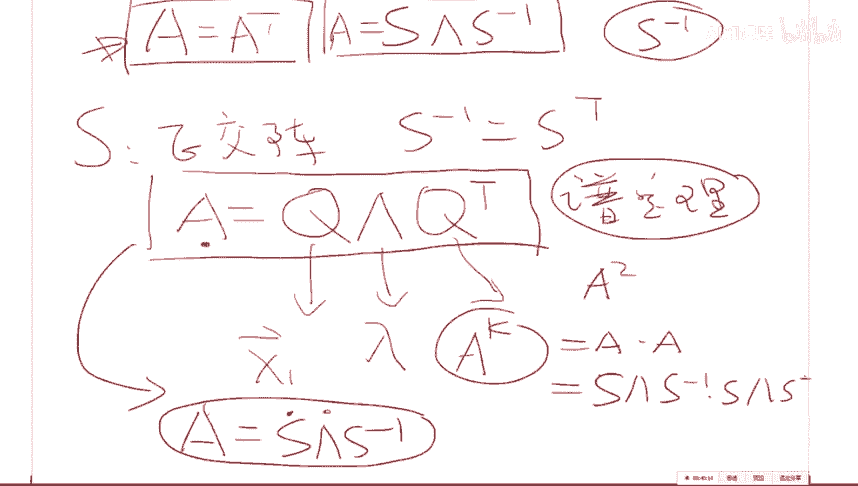 A = Aᵀ A = SΛS⁻¹ S⁻¹
S: 正交阵 S⁻¹ = Sᵀ
A = QΛQᵀ 谱定理
A²
x₁ λ Aᴷ = A · A
= SΛS⁻¹·SΛS⁻
A = SΛS⁻¹